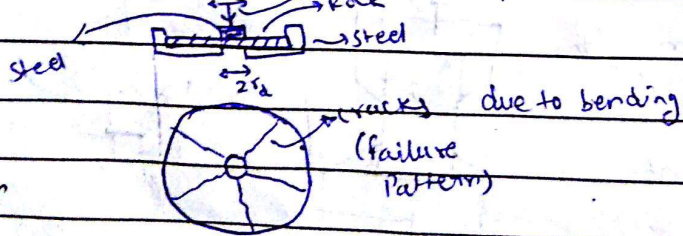 Rock
steel
→ steel
2rd
cracks due to bending
(failure
Pattern)